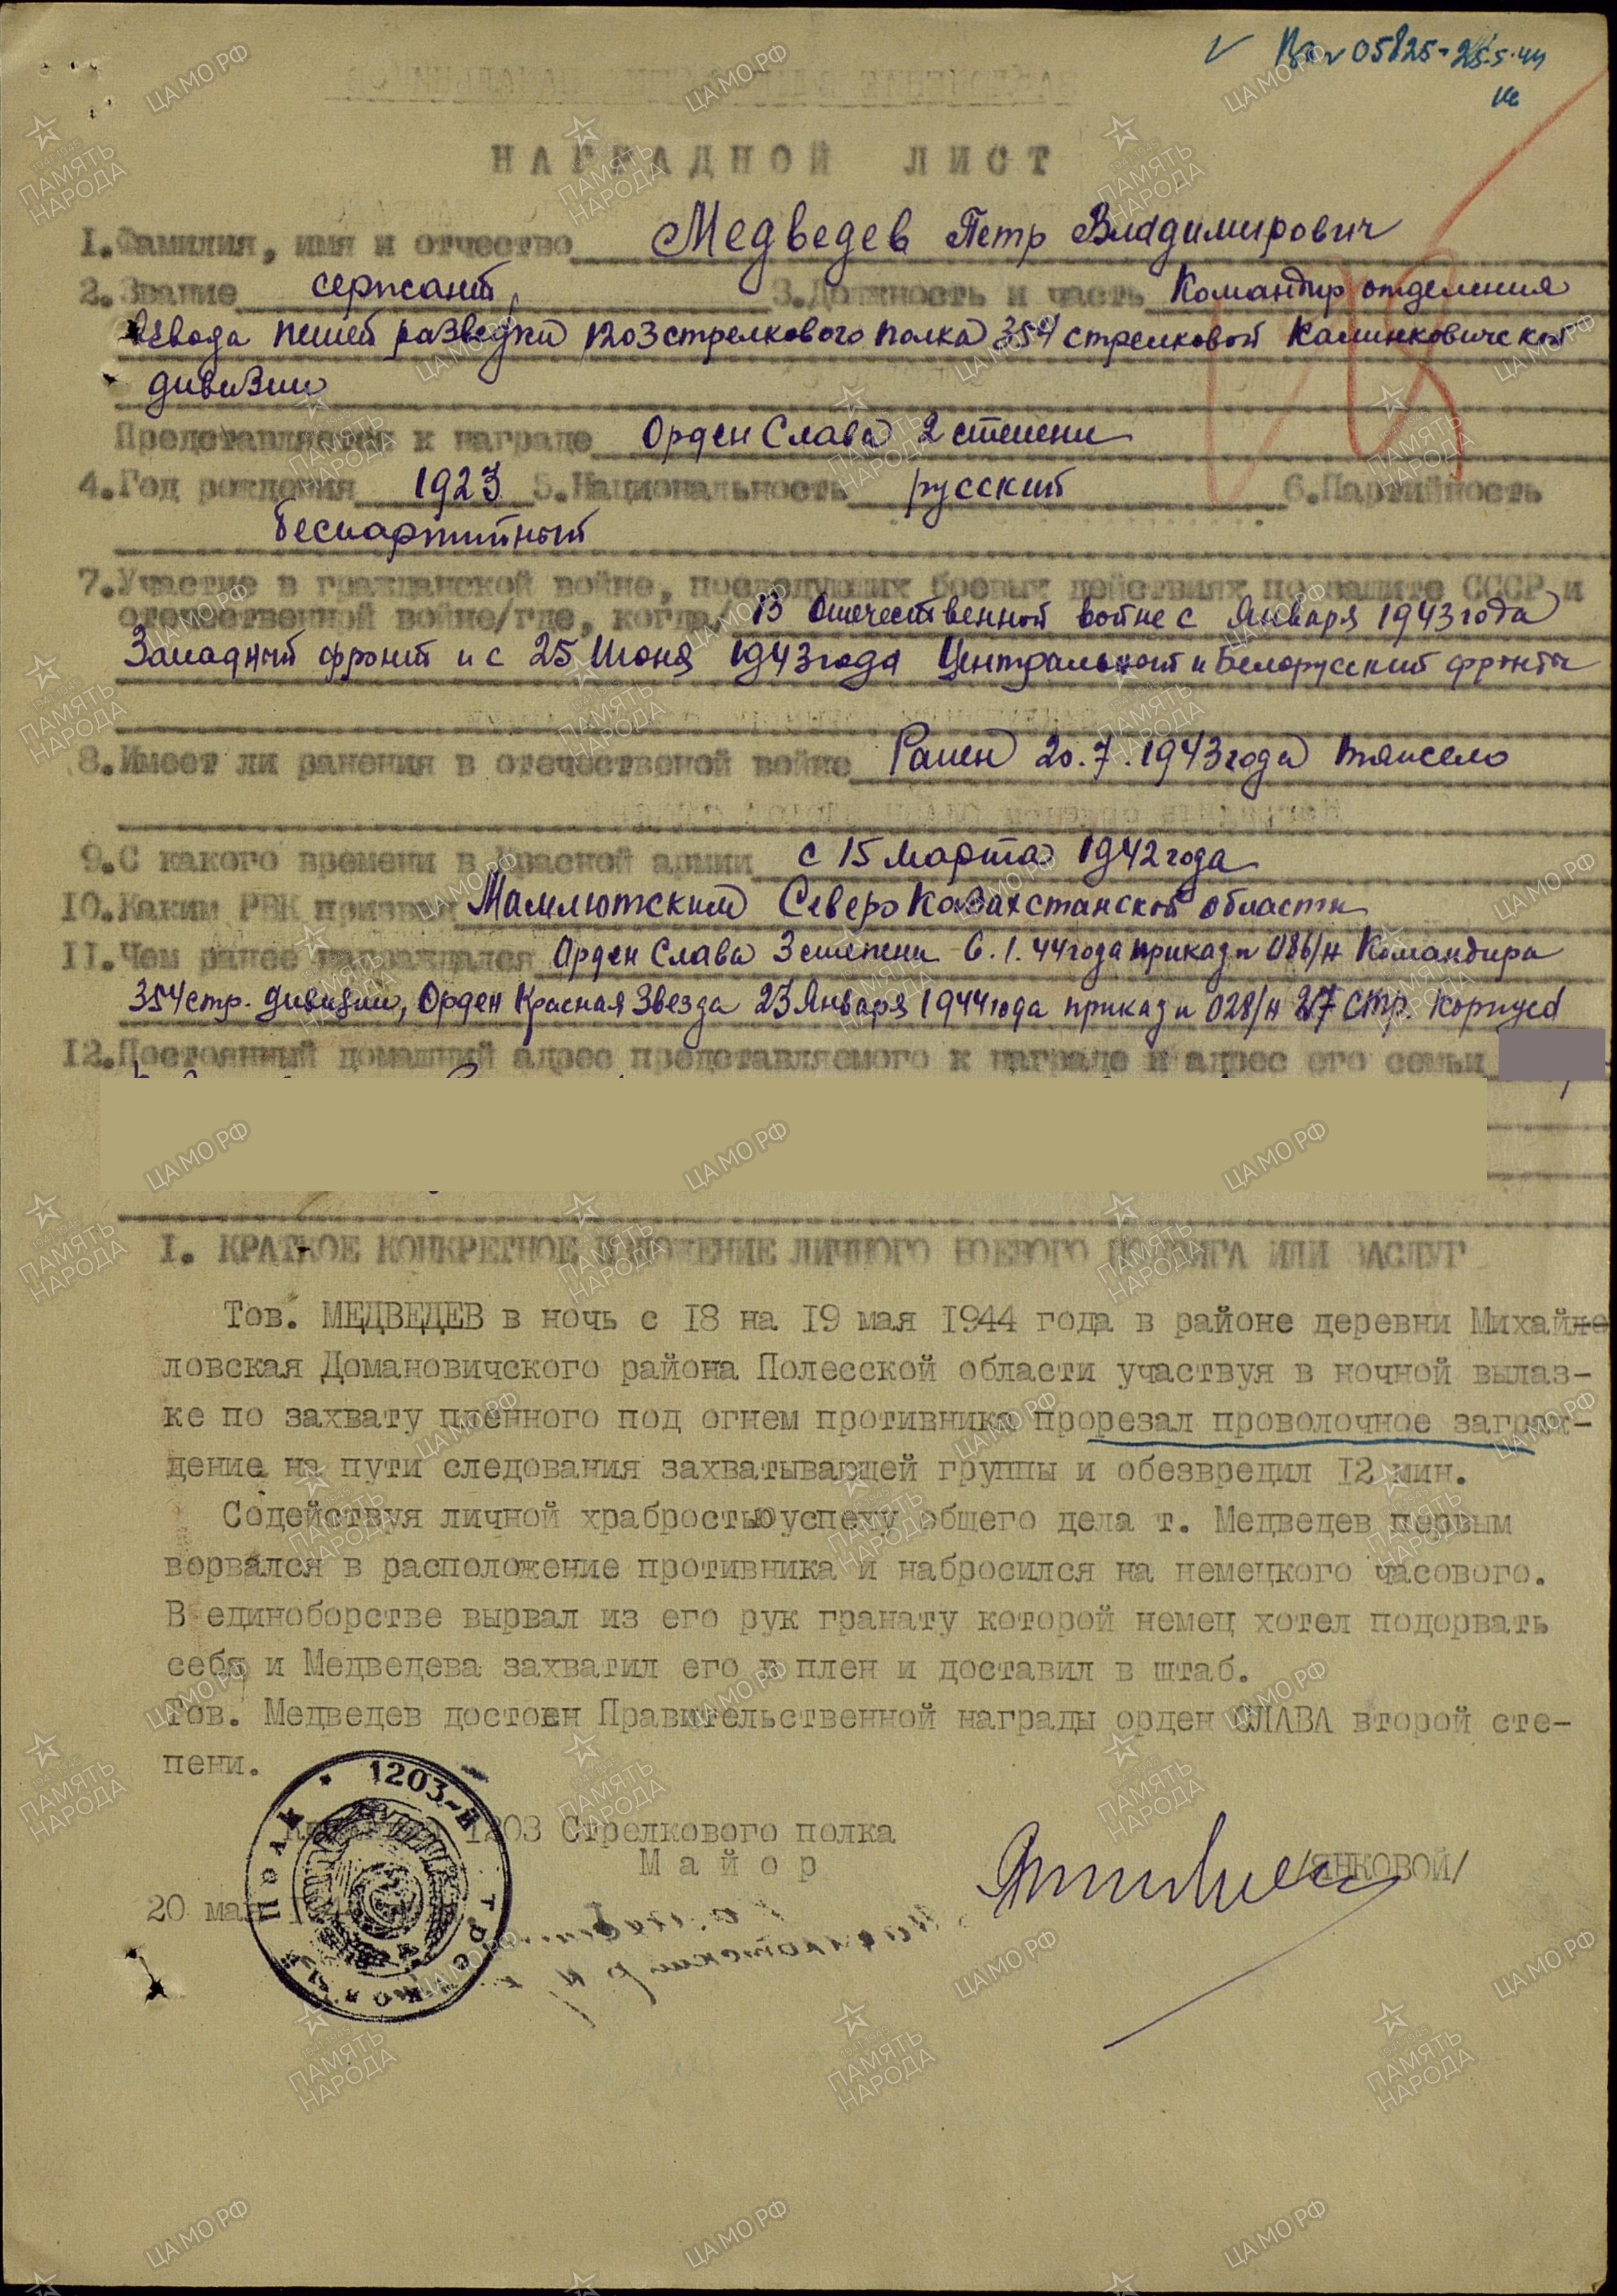 Вх № 05825-25.5.44
НАГРАДНОЙ ЛИСТ
1. Фамилия, имя и отчество Медведев Петр Владимирович
2. Звание сержант 3. Должность и часть Командир отделения
взвода пешей разведки 1203 стрелкового полка 354 стрелковой Калинковической
дивизии
Представляется к награде Орден Слава 2 степени
4. Год рождения 1923 5. Национальность русский 6. Партийность
беспартийный
7. Участие в гражданской войне, последующих боевых действиях по защите СССР и
отечественной войне/где, когда/ В Отечественной войне с Января 1943 года
Западный фронт и с 25 Июня 1943 года Центральный и Белорусский фронты
8. Имеет ли ранения в отечественой войне Ранен 20.7.1943 года тяжело
9. С какого времени в Красной армии с 15 Марта 1942 года
10. Каким РВК призван Мамлютским Северо Казахстанской области
11. Чем ранее награждался Орден Слава 3 степени 6.1.44 года приказ № 086/н Командира
354 стр. дивизии, Орден Красная Звезда 23 Января 1944 года приказ № 028/н 27 стр. корпуса
12. Постоянный домашний адрес представляемого к награде и адрес его семьи
I. КРАТКОЕ КОНКРЕТНОЕ ИЗЛОЖЕНИЕ ЛИЧНОГО БОЕВОГО ПОДВИГА ИЛИ ЗАСЛУГ
Тов. МЕДВЕДЕВ в ночь с 18 на 19 мая 1944 года в районе деревни Михай
ловская Домановичского района Полесской области участвуя в ночной вылаз-
ке по захвату пленного под огнем противника прорезал проволочное заграж-
дение на пути следования захватывающей группы и обезвредил 12 мин.
Содействуя личной храбростью успеху общего дела т. Медведев первым
ворвался в расположение противника и набросился на немецкого часового.
В единоборстве вырвал из его рук гранату которой немец хотел подорвать
себя и Медведева захватил его в плен и доставил в штаб.
Тов. Медведев достоен Правительственной награды орден СЛАВА второй сте-
пени.
1203 Стрелкового полка
Майор /ЯНКОВОЙ/
20 мая
1203-й СТРЕЛКОВЫЙ ПОЛК
ПАМЯТЬ НАРОДА
ЦАМО РФ